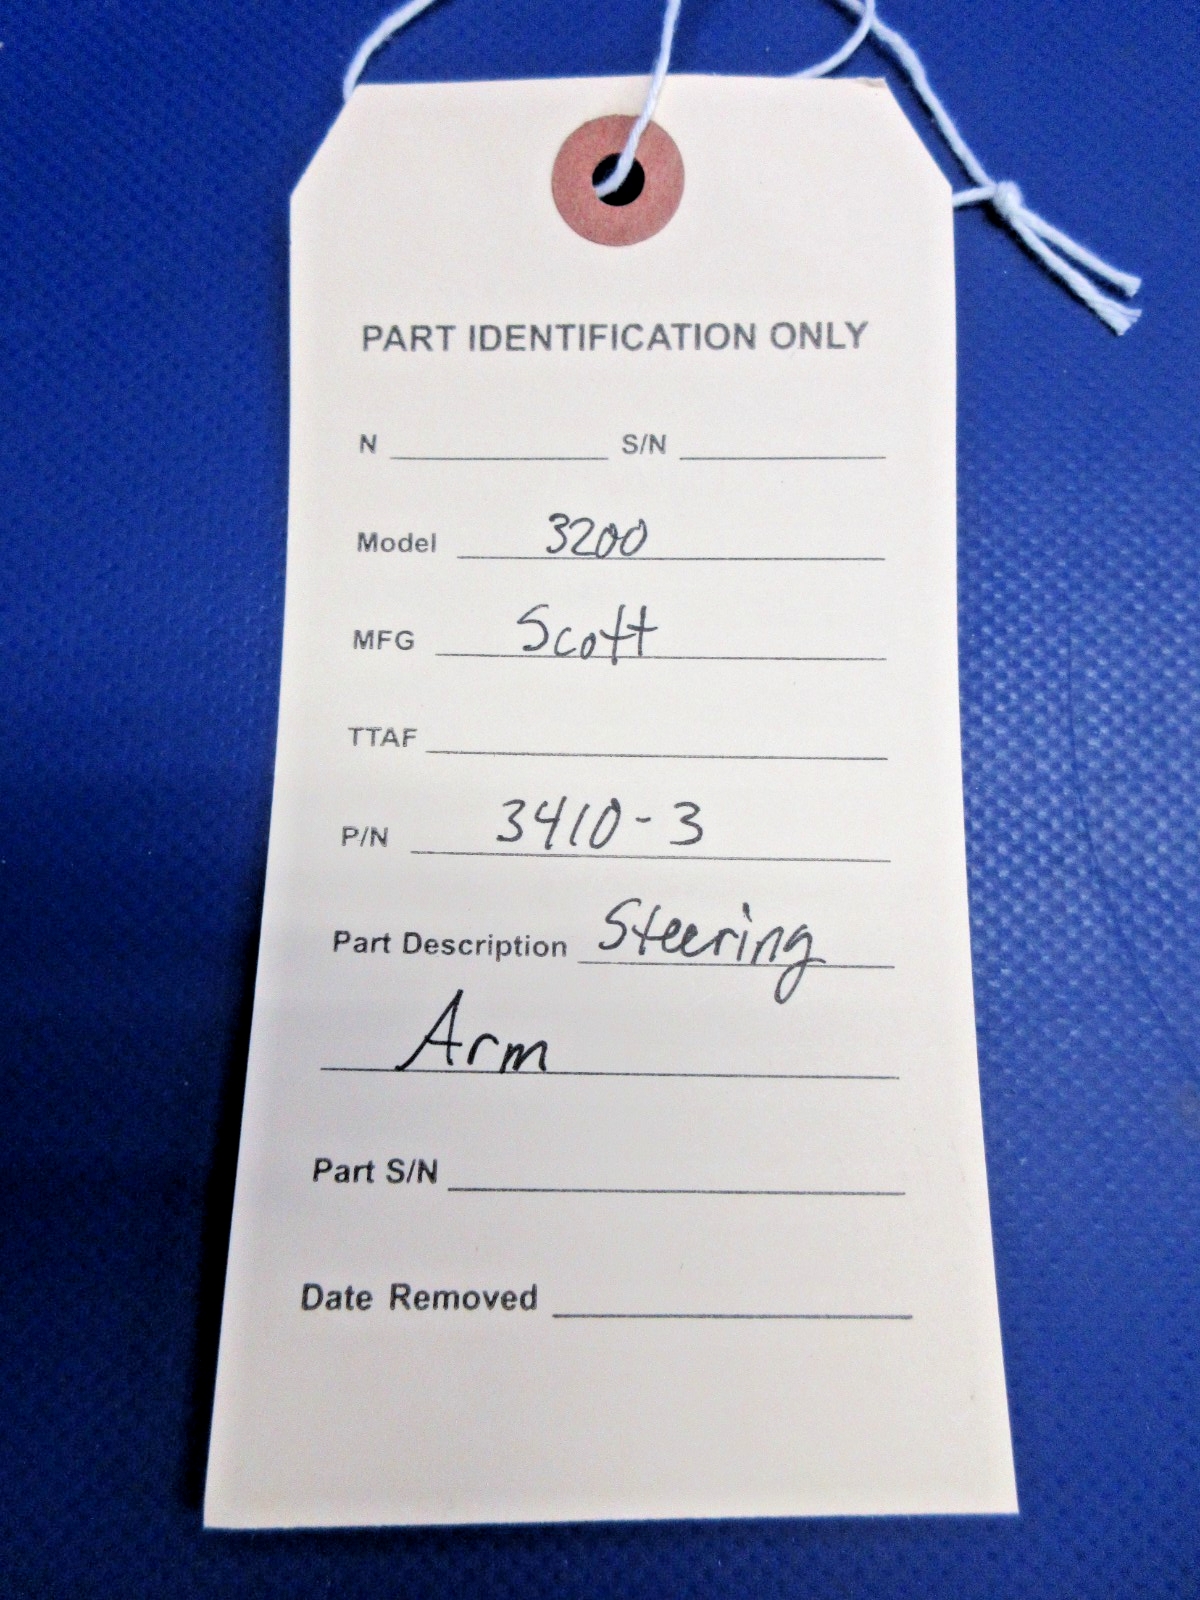 PART IDENTIFICATION ONLY
N S/N
Model 3200
MFG Scott
TTAF
P/N 3410-3
Part Description Steering
Arm
Part S/N
Date Removed